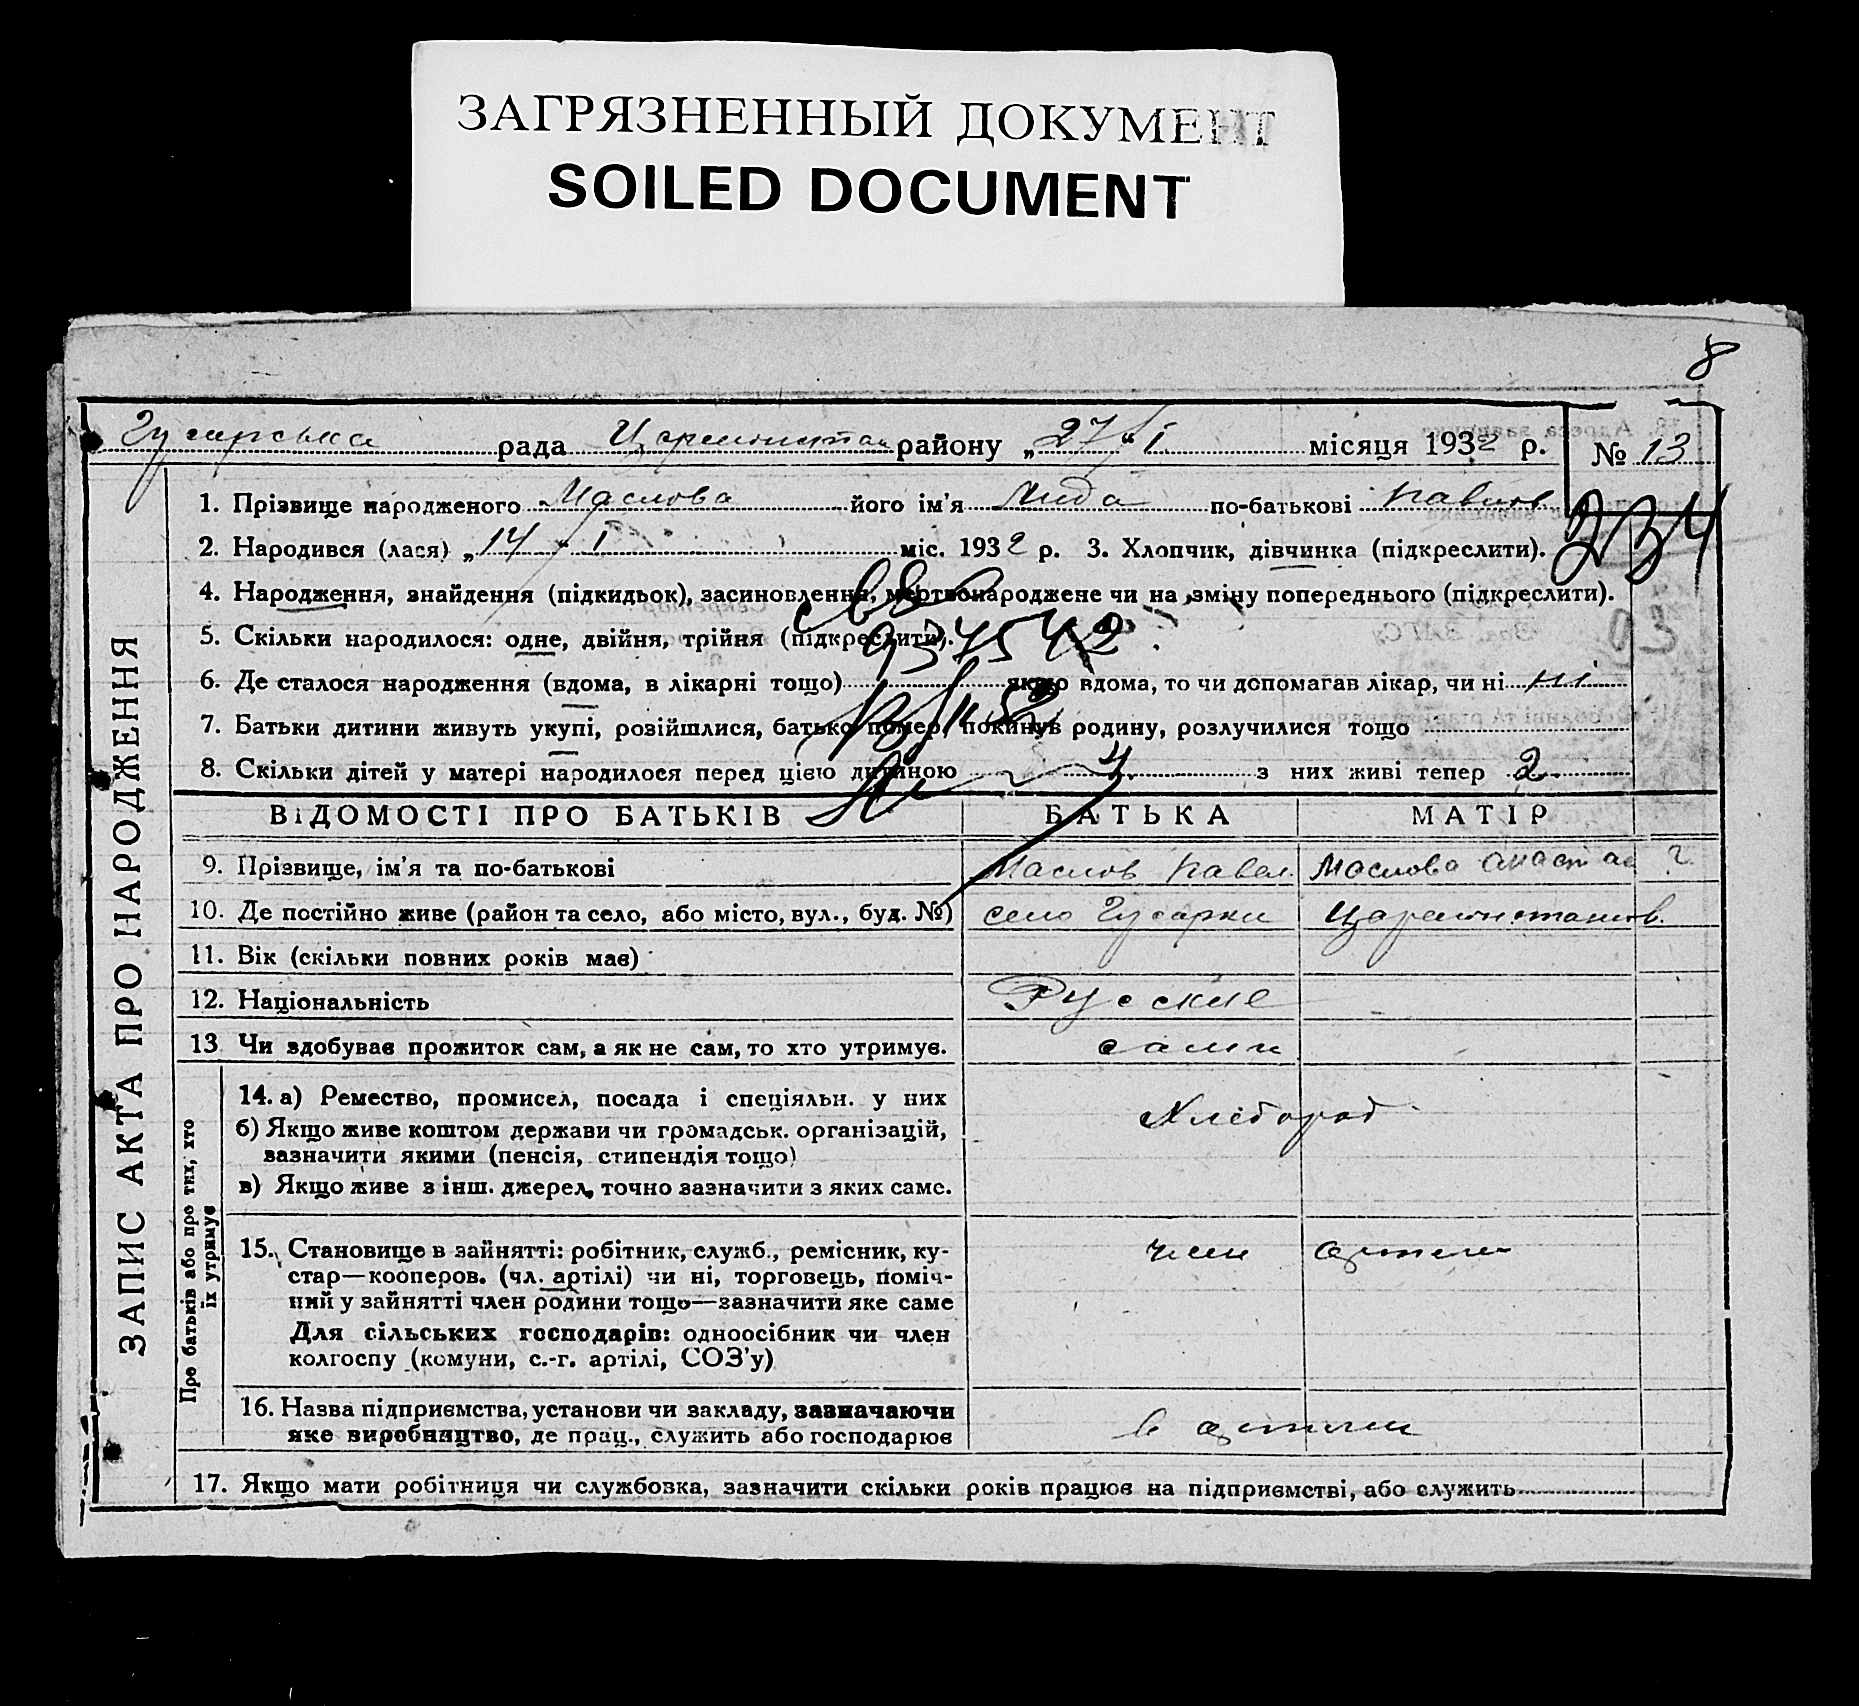 ЗАГРЯЗНЕННЫЙ ДОКУМЕНТ
SOILED DOCUMENT
8
Гусарська рада району „27“ I місяця 1932 р. № 13
1. Прізвище народженого Маслова його ім'я Лида по-батькові Павлов
234
2. Народився (лася) „14“ I міс. 1932 р. 3. Хлопчик, дівчинка (підкреслити).
4. Народження, знайдення (підкидьок), засиновлення, мертвонароджене чи на зміну попереднього (підкреслити).
5. Скільки народилося: одне, двійня, трійня (підкреслити).
6. Де сталося народження (вдома, в лікарні тощо) якщо вдома, то чи допомагав лікар, чи ні ні
7. Батьки дитини живуть укупі, розійшлися, батько помер, покинув родину, розлучилися тощо
8. Скільки дітей у матері народилося перед цією дитиною 4 з них живі тепер 2
ВІДОМОСТІ ПРО БАТЬКІВ БАТЬКА МАТІР
9. Прізвище, ім'я та по-батькові Маслов Павел Маслова Анастас ?
10. Де постійно живе (район та село, або місто, вул., буд. №) село Гусарки Цареконстантинов.
11. Вік (скільки повних років має)
12. Національність Русские
13 Чи здобуває прожиток сам, а як не сам, то хто утримує. сами
14. а) Ремество, промисел, посада і спеціяльн. у них Хлібороб
б) Якщо живе коштом держави чи громадськ. організацій,
зазначити якими (пенсія, стипендія тощо)
в) Якщо живе з інш. джерел, точно зазначити з яких саме.
15. Становище в зайнятті: робітник, служб., ремісник, ку- член артели
стар—кооперов. (чл. артілі) чи ні, торговець, поміч-
ний у зайнятті член родини тощо—зазначити яке саме
Для сільських господарів: одноосібник чи член
колгоспу (комуни, с.-г. артілі, СОЗ'у)
16. Назва підприємства, установи чи закладу, зазначаючи
яке виробництво, де прац., служить або господарює в артели
17. Якщо мати робітниця чи службовка, зазначити скільки років працює на підприємстві, або служить
ЗАПИС АКТА ПРО НАРОДЖЕННЯ
Про батьків або про тих, хто
їх утримує